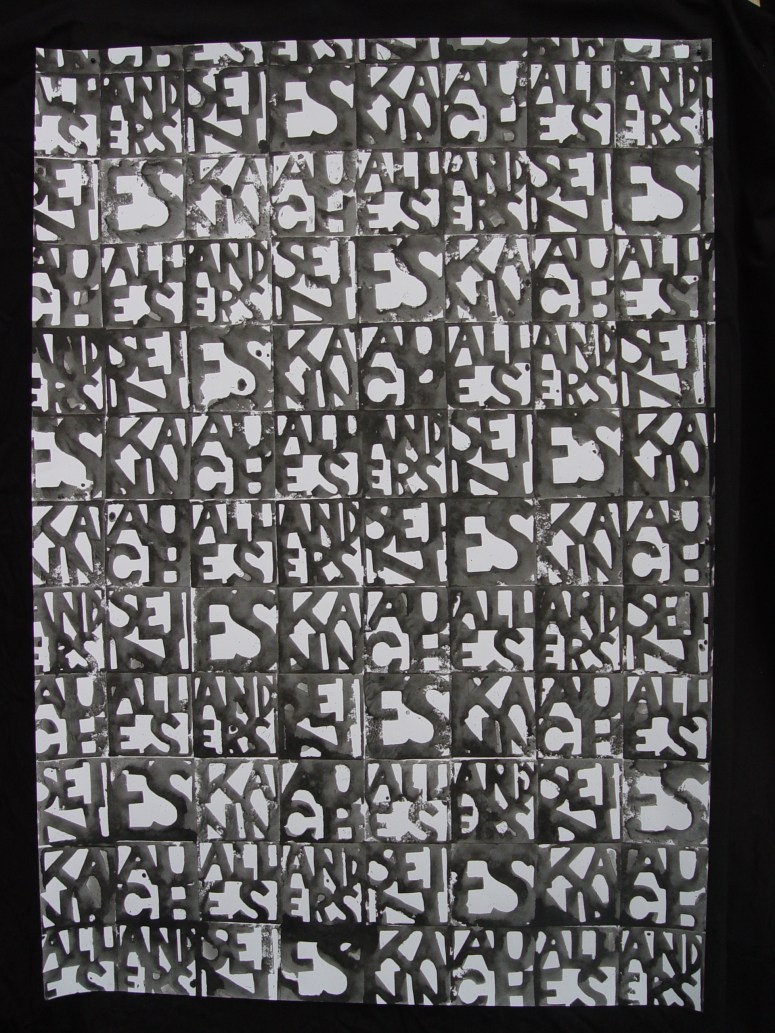 ALLES ANDERS SEIN ES KANN AUCH ALLES ANDERS
SEIN ES KANN AUCH ALLES ANDERS SEIN ES
AUCH ALLES ANDERS SEIN ES KANN AUCH ALLES
ANDERS SEIN ES KANN AUCH ALLES ANDERS SEIN
ES KANN AUCH ALLES ANDERS SEIN ES KANN
KANN AUCH ALLES ANDERS SEIN ES KANN AUCH
ANDERS SEIN ES KANN AUCH ALLES ANDERS SEIN
AUCH ALLES ANDERS SEIN ES KANN AUCH ALLES
SEIN ES KANN AUCH ALLES ANDERS SEIN ES
KANN AUCH ALLES ANDERS SEIN ES KANN AUCH
ALLES ANDERS SEIN ES KANN AUCH ALLES ANDERS